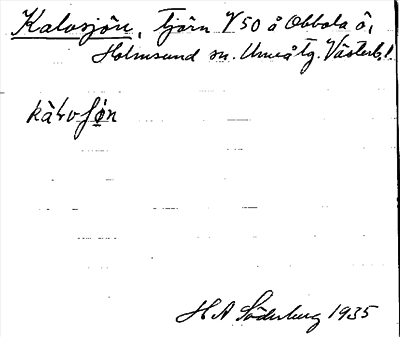 Kalvsjön, tjärn V 50 å Obbola ö,
Holmsund sn. Umeå tg. Västerb. l
H A Söderberg 1935